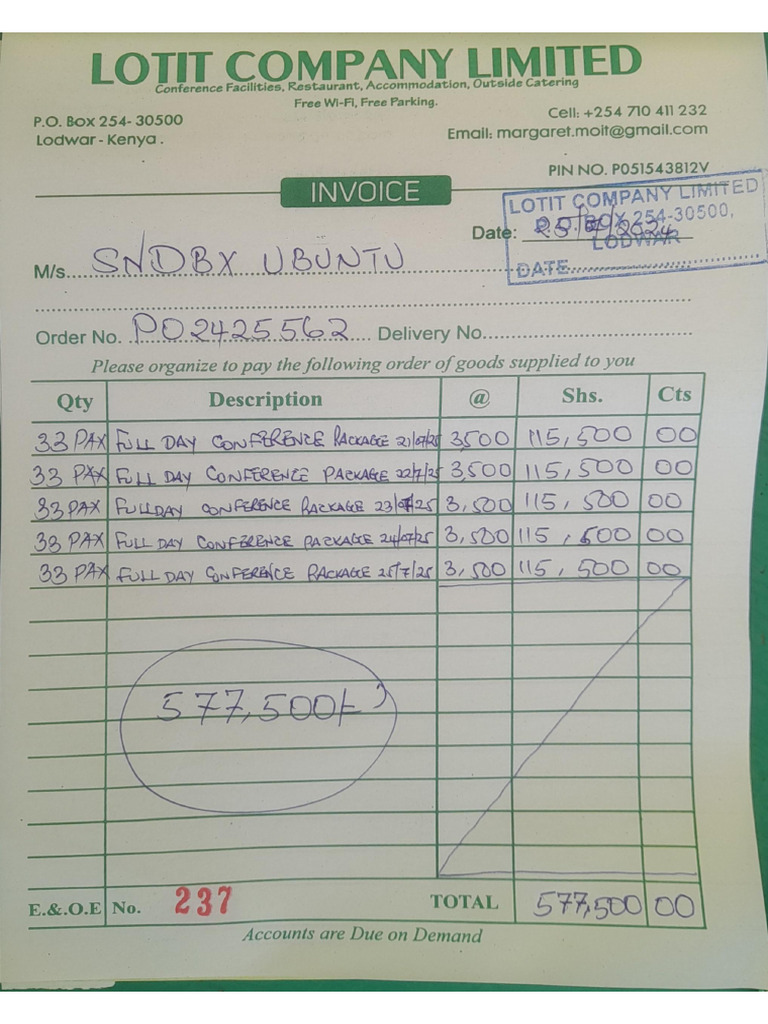 LOTIT COMPANY LIMITED
Conference Facilities, Restaurant, Accommodation, Outside Catering
Free Wi-Fi, Free Parking.
P.O. Box 254- 30500
Lodwar - Kenya .
Cell: +254 710 411 232
Email: margaret.moit@gmail.com
PIN NO. P051543812V
INVOICE
LOTIT COMPANY LIMITED
P.O. BOX 254-30500,
LODWAR
DATE
Date: 25/7/2024
M/s. SNDBX UBUNTU
Order No. PO2425562 Delivery No.
Please organize to pay the following order of goods supplied to you
Qty Description @ Shs. Cts
33 PAX FULL DAY CONFERENCE PACKAGE 21/07/25 3,500 115,500 00
33 PAX FULL DAY CONFERENCE PACKAGE 22/7/25 3,500 115,500 00
33 PAX FULL DAY CONFERENCE PACKAGE 23/07/25 3,500 115,500 00
33 PAX FULL DAY CONFERENCE PACKAGE 24/07/25 3,500 115,500 00
33 PAX FULL DAY CONFERENCE PACKAGE 25/7/25 3,500 115,500 00
577,500/-
E.&.O.E No. 237 TOTAL 577,500 00
Accounts are Due on Demand